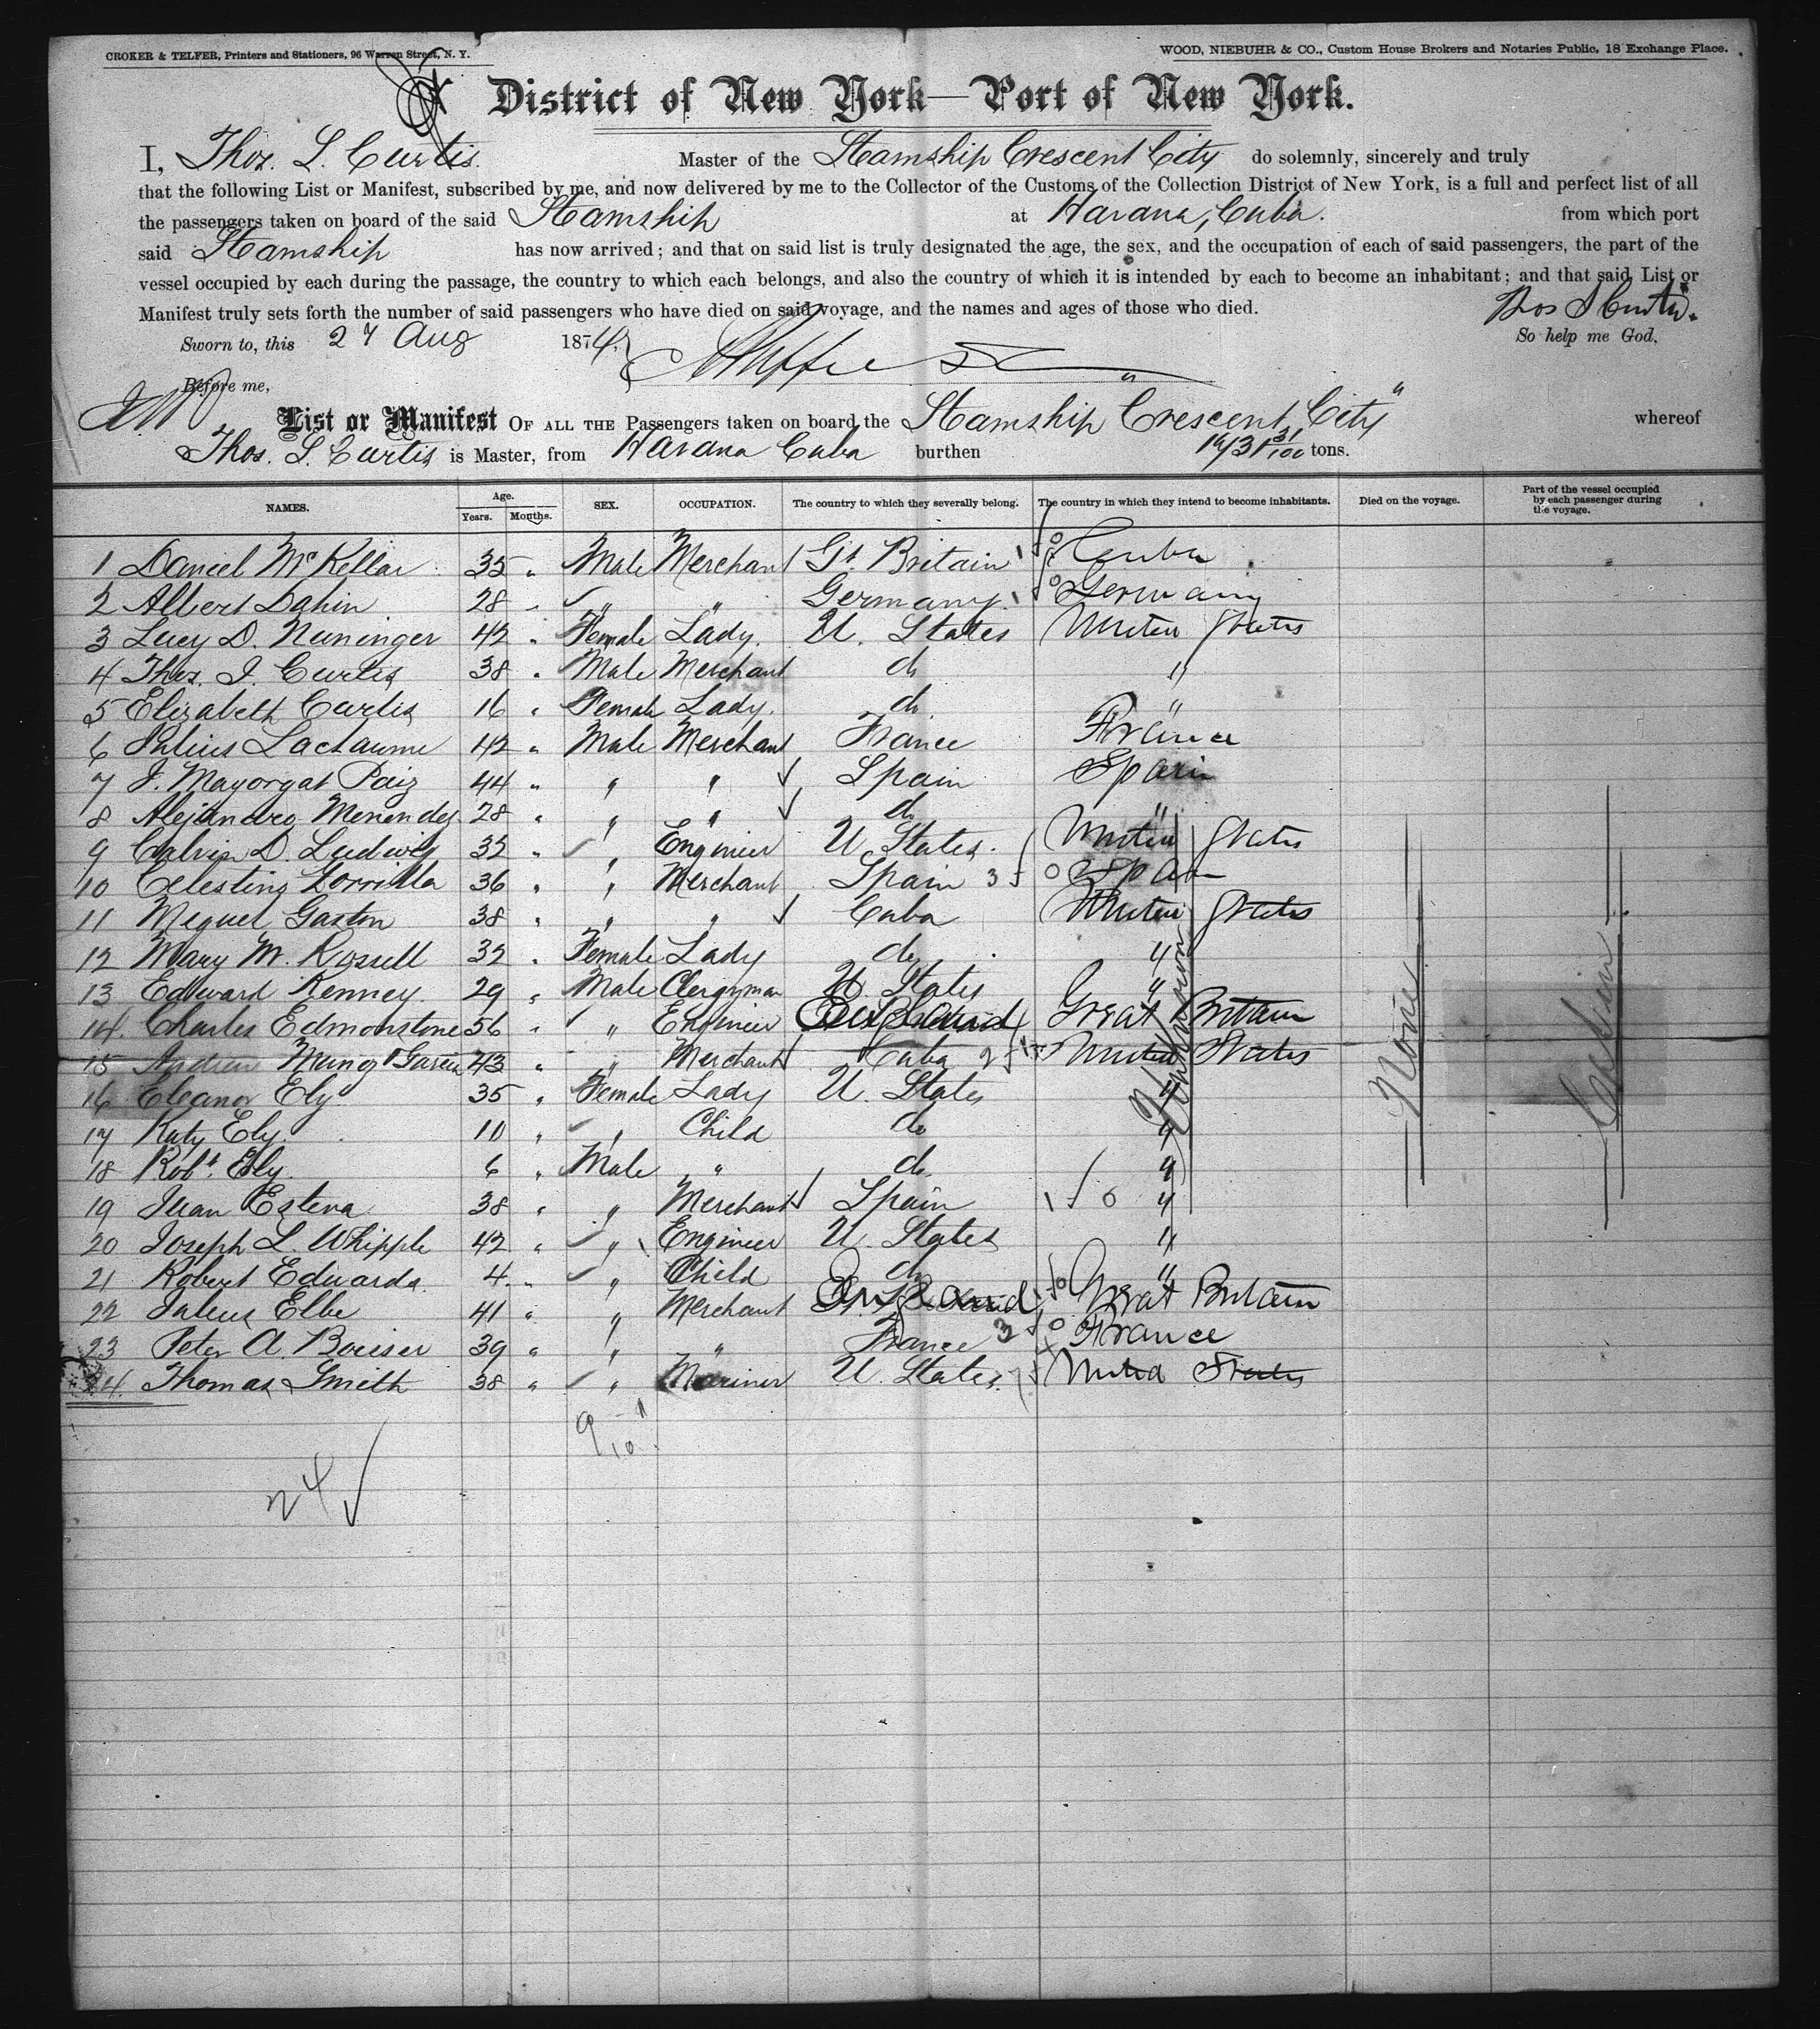 CROKER & TELFER, Printers and Stationers, 96 Warren Street, N. Y. WOOD, NIEBUHR & CO., Custom House Brokers and Notaries Public, 18 Exchange Place.
District of New York—Port of New York.
I, Thos. S. Curtis. Master of the Steamship Crescent City do solemnly, sincerely and truly
that the following List or Manifest, subscribed by me, and now delivered by me to the Collector of the Customs of the Collection District of New York, is a full and perfect list of all
the passengers taken on board of the said Steamship at Havana, Cuba. from which port
said Steamship has now arrived; and that on said list is truly designated the age, the sex, and the occupation of each of said passengers, the part of the
vessel occupied by each during the passage, the country to which each belongs, and also the country of which it is intended by each to become an inhabitant; and that said List or
Manifest truly sets forth the number of said passengers who have died on said voyage, and the names and ages of those who died. Thos S Curtis.
Sworn to, this 27 Aug 1874 So help me God,
Before me,
List or Manifest OF ALL THE Passengers taken on board the Steamship "Crescent City" whereof
Thos. S. Curtis is Master, from Havana Cuba burthen 31/100 tons.
NAMES. Age. Years. Months. SEX. OCCUPATION. The country to which they severally belong. The country in which they intend to become inhabitants. Died on the voyage. Part of the vessel occupied by each passenger during the voyage.
1 Daniel McKellar 35 " Male Merchant Gt. Britain 1 Cuba
2 Albert Dahin 28 " " " Germany 1 Germany
3 Lucy D. Nuninger 42 " Female Lady. U. States United States
4 Thos. J. Curtis 38 " Male Merchant do "
5 Elizabeth Curtis 16 " Female Lady. do. "
6 Julius Lachaume 42 " Male Merchant France France
7 J. Mayorgat Paiz 44 " " " Spain Spain
8 Alejandro Menendez 28 " " " do "
9 Calvin D. Ludwig 35 " " Engineer U States. United States
10 Celestino Zorrilla 36 " " Merchant Spain 3 Spain
11 Meguel Gaston 38 " " " Cuba United States
12 Mary M. Rossell 32 " Female Lady do "
13 Edward Kenney. 29 " Male Clergyman U States "
14. Charles Edmonstone 56 " " Engineer England Great Britain
15 Andrew Munoz Garcia 43 " " Merchant Cuba 2 United States
16 Eleanor Ely 35 " Female Lady U. States "
17 Katy Ely. 10 " " Child do "
18 Robt. Ely. 6 " Male " do. "
19 Juan Esteva 38 " " Merchant Spain 1 0 "
20 Joseph L. Whipple 42 " " Engineer U. States "
21 Robert Edwards. 4. " " Child do "
22 Julius Elbe 41 " " Merchant England Great Britain
23 Peter A. 39 " " " France 3 France
24. Thomas Smith 38 " " Mariner U. States. United States
None
Cabin
9 10
24